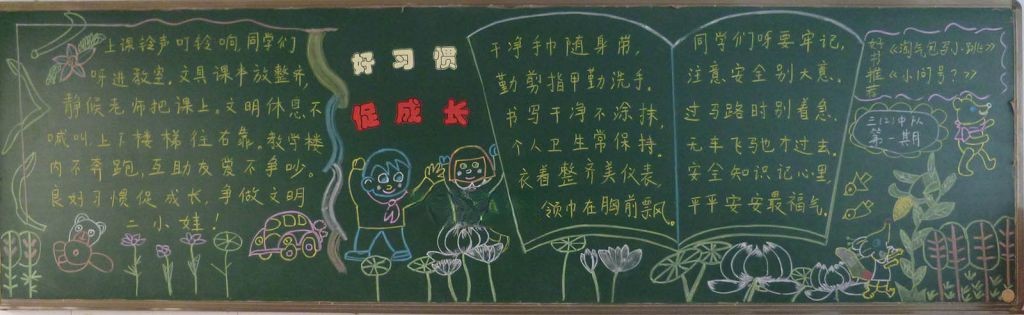 上课铃声叮铃响,同学们
呀进教室。文具课本放整齐,
静候老师把课上。文明休息不
喊叫,上下楼梯往右靠。教学楼
内不奔跑,互助友爱不争吵。
良好习惯促成长,争做文明
二小娃!
好习惯
促成长
干净手巾随身带,
勤剪指甲勤洗手。
书写干净不涂抹,
个人卫生常保持。
衣着整齐美仪表,
领巾在胸前飘。
同学们呀要牢记,
注意安全别大意。
过马路时别着急,
无车飞驰才过去。
安全知识记心里,
平平安安最福气。
好书推荐
《淘气包马小跳》
《小问号?》
三(2)中队
第一期